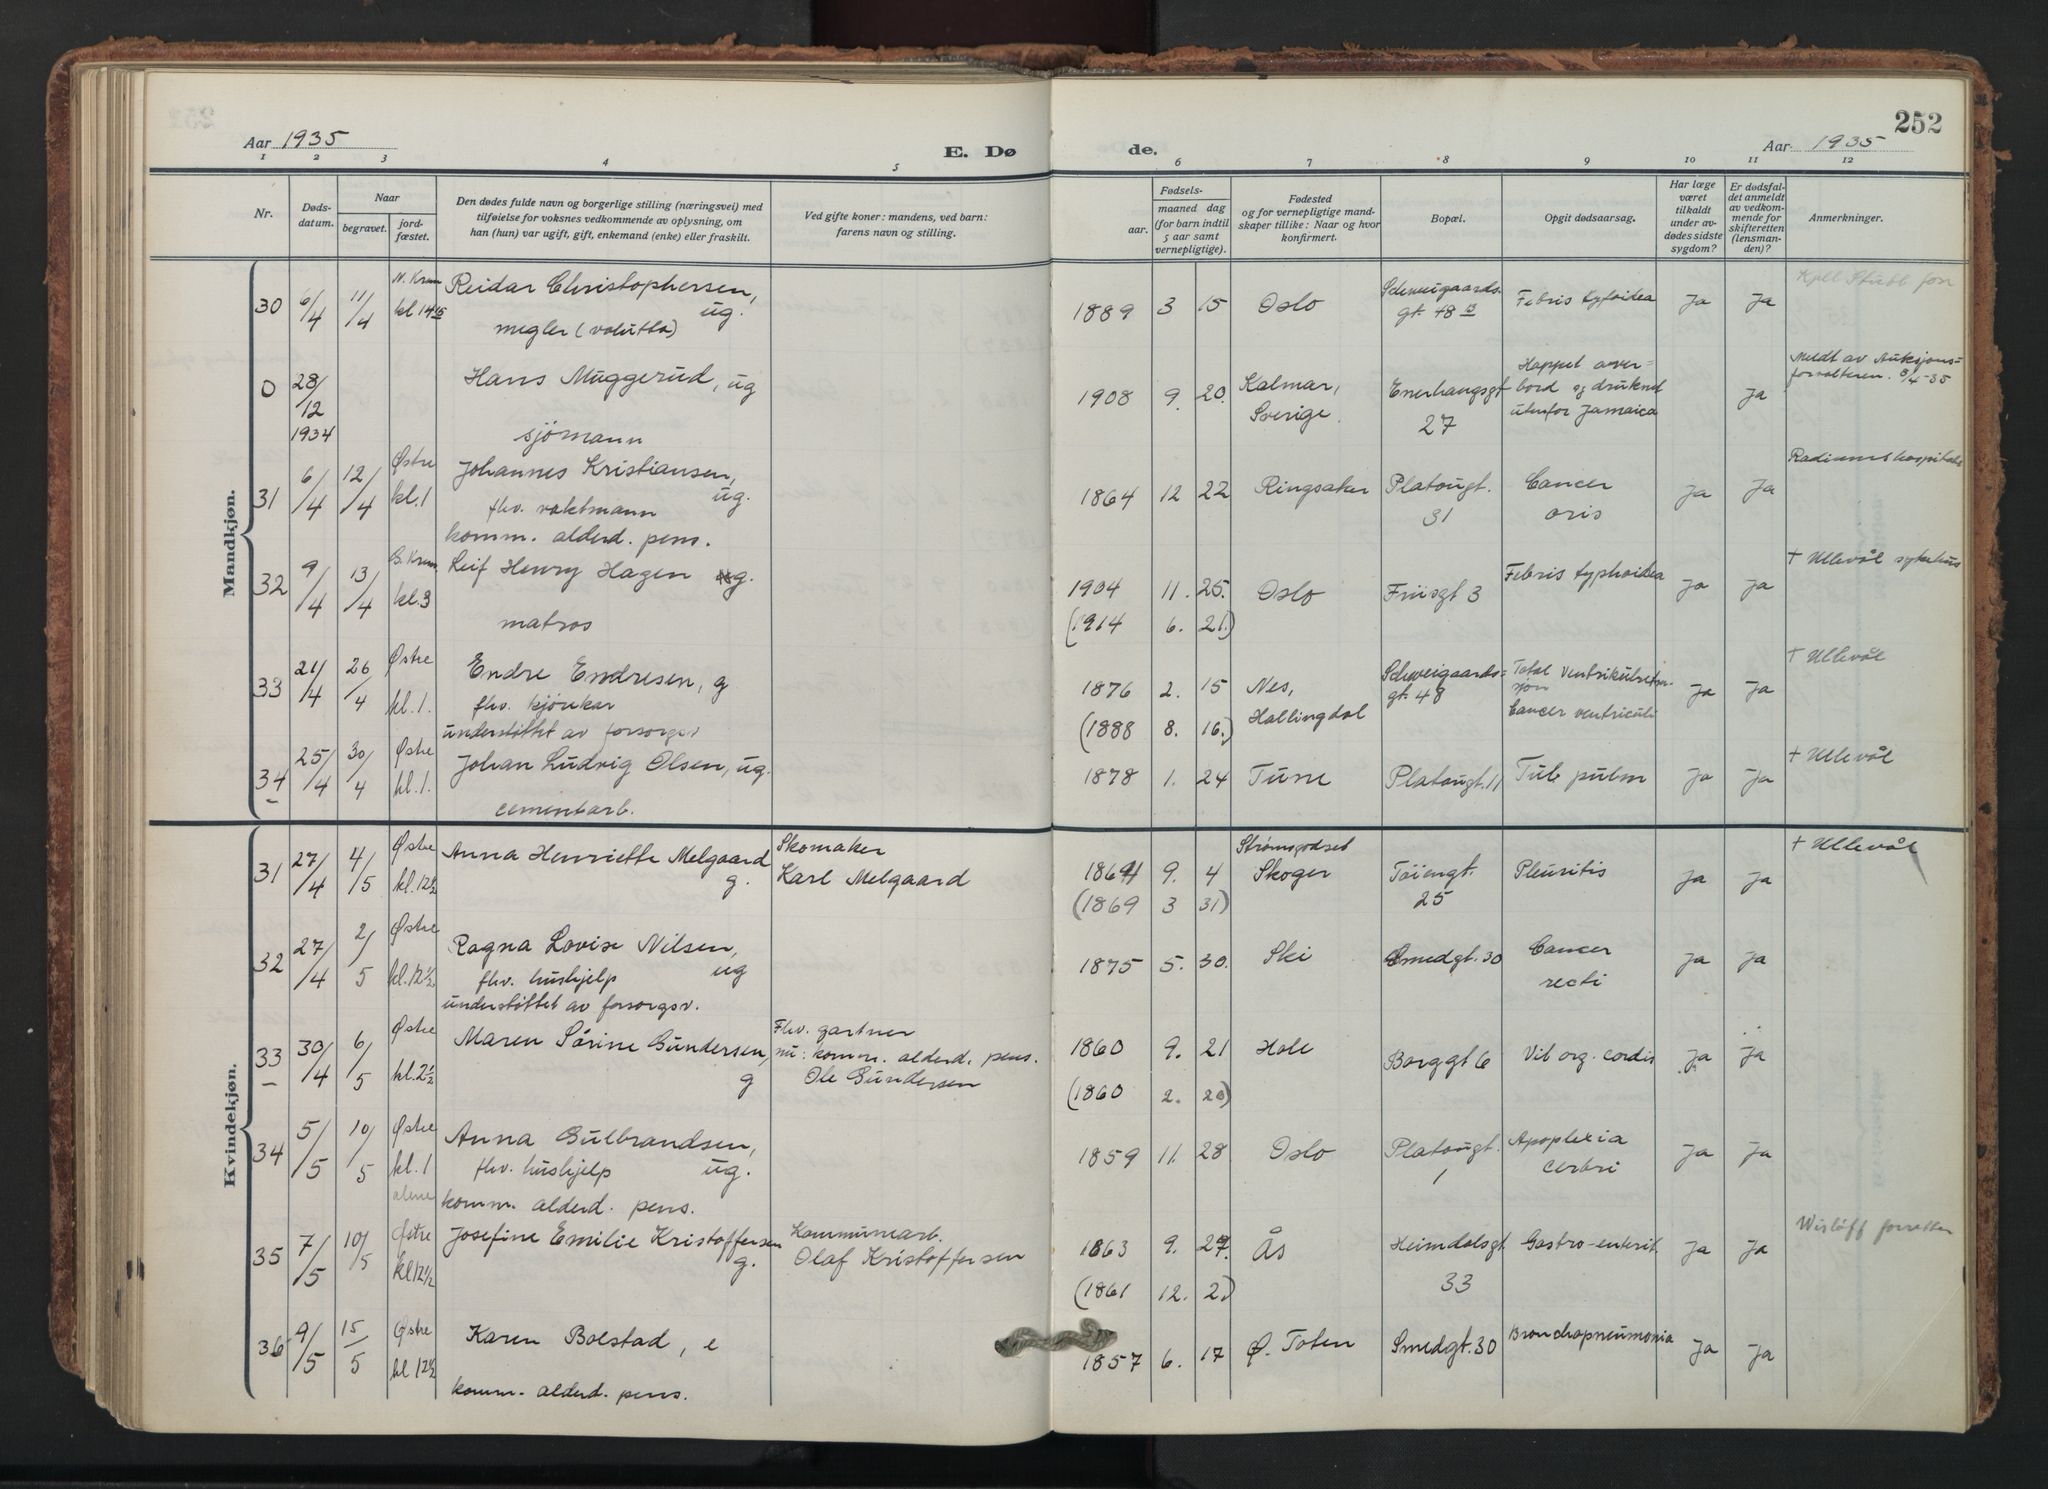 252
Aar 1935
E. Dø
de.
Aar 1935
1 2 3 4 5 6 7 8 9 10 11 12
Nr.
Døds-
datum.
Naar
begravet.
jord-
fæstet.
Den dødes fulde navn og borgerlige stilling (næringsvei) med
tilføielse for voksnes vedkommende av oplysning, om
han (hun) var ugift, gift, enkemand (enke) eller fraskilt.
Ved gifte koner: mandens, ved barn:
farens navn og stilling.
Fødsels-
aar.
maaned dag
(for barn indtil
5 aar samt
vernepligtige).
Fødested
og for vernepligtige mand-
skaper tillike: Naar og hvor
konfirmert.
Bopæl.
Opgit dødsaarsag.
Har læge
været
tilkaldt
under av-
dødes sidste
sygdom?
Er dødsfal-
det anmeldt
av vedkom-
mende for
skifteretten
(lensman-
den)?
Anmerkninger.
Mandkjøn.
30 6/4 11/4 N. Krem kl 14 15 Reidar Christophersen, ug.
megler (valutta)
1889 3 15 Oslo Schweigaards.
gt. 48 B Febris tyfoidea Ja Ja
0 28/12 1934 Hans Muggerud, ug
sjömann
1908 9. 20. Kalmar,
Sverige. Enerhaugsgt
27 Hoppet over-
bord og druknet
utenfor Jamaica Ja Meldt av Auksjons-
forvalteren. 8/4-35
31 6/4 12/4 Østre kl. 1 Johannes Kristiansen, ug.
fhv. vaktmann
komm. alderd. pens.
1864 12 22 Ringsaker Platougt.
31 Cancer
oris Ja Ja Radiumshospitalet
32 9/4 13/4 kl. 3 Leif Henry Hagen ug.
matros
1904 11. 25. Oslo Friisgt 3 Febris typhoidea Ja Ja + Ullevål sykehus
(1914 6. 21.)
33 21/4 26/4 Østre kl. 1. Endre Endresen, g
fhv. kjörekar
understöttet av forsorgsv
1876 2. 15 Nes,
Hallingdal Schweigaards=
gt. 48 Total
Cancer ventriculi Ja Ja + Ullevål
(1888 8. 16.)
34 25/4 30/4 Østre kl. 1. Johan Ludvig Olsen, ug.
cementarb.
1878 1. 24 Tune Platougt. 11 Tub pulm Ja Ja + Ullevål
Kvindekjøn.
31 27/4 4/5 Østre kl. 12½ Anna Henriette Melgaard g.
Skomaker
Karl Melgaard
1864 9. 4 Strømsgodset
Skoger Töiengt.
25 Pleuritis Ja Ja + Ullevål
(1869 3 31)
32 27/4 2/5 Østre kl. 12½ Ragna Lovise Nilsen, ug
fhv. hushjelp
understöttet av forsorgsv.
1875 5. 30. Ski Smedgt. 30 Cancer
recti Ja Ja
33 30/4 6/5 Østre kl. 2½ Maren Sörine Gundersen, g
Fhv. gartner
nu: komm. alderd. pens.
Ole Gundersen
1860 9. 21 Hole Borggt 6 Vit org. cordis Ja Ja
(1860 2. 20)
34 5/5 10/5 Østre kl. 1 alene Anna Gulbrandsen, ug.
fhv. hushjelp
komm. alderd. pens.
1859 11. 28 Oslo Platougt.
1 Apoplexia
cerbri Ja Ja
35 7/5 10/5 Østre kl 12½ Josefine Emilie Kristoffersen g.
Kommunearb.
Olaf Kristoffersen
1863 9. 27. Ås Heimdalsgt
33 Gastro-enterit. Ja Ja Wisløff forretter
(1861 12. 2.)
36 9/5 15/5 Østre kl 12½ Karen Bolstad, e
komm. alderd. pens.
1857 6. 17 Ø. Toten Smedgt. 30 Bronchopneumonia Ja Ja